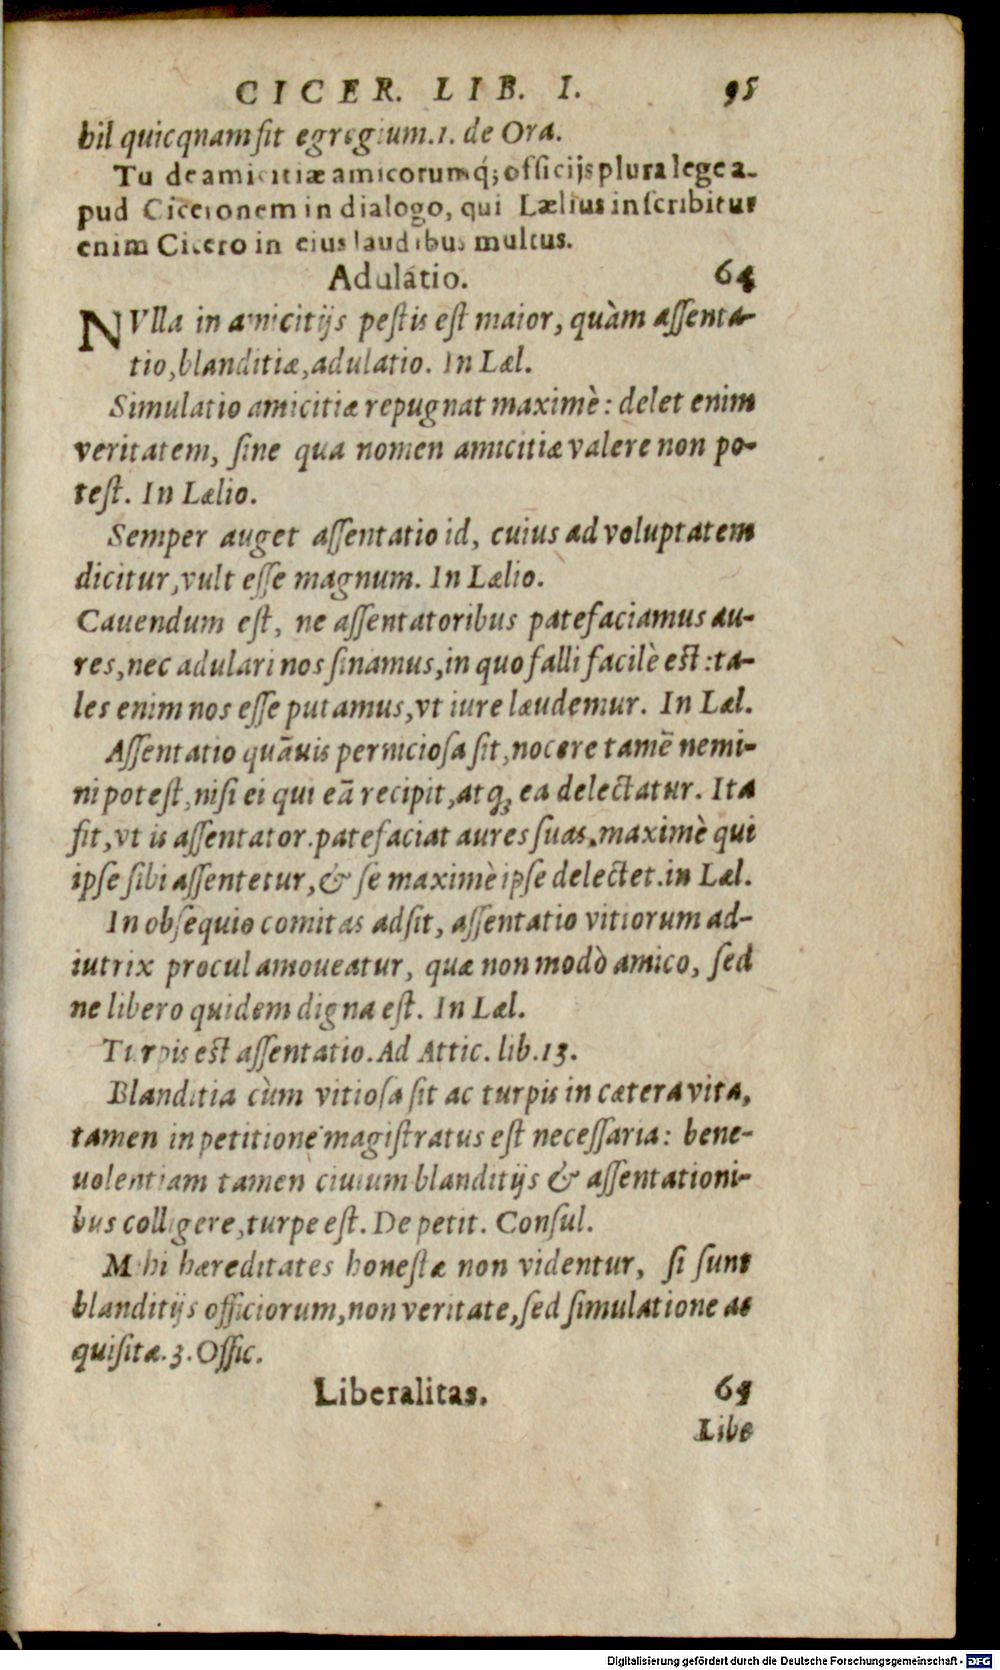 CICER. LIB. I. 95
bil quicqnam sit egregium.1. de Ora.
Tu de amicitiæ amicorumq́; officijs plura lege a-
pud Ciceronem in dialogo, qui Lælius inscribitur
enim Cicero in eius laudibus multus.
Adulatio. 64
NVlla in amicitijs pestis est maior, quàm assenta-
tio, blanditiæ, adulatio. In Læl.
Simulatio amicitiæ repugnat maximè: delet enim
veritatem, sine qua nomen amicitiæ valere non po-
test. In Lælio.
Semper auget assentatio id, cuius ad voluptatem
dicitur, vult esse magnum. In Lælio.
Cauendum est, ne assentatoribus patefaciamus au-
res, nec adulari nos sinamus, in quo falli facilè est: ta-
les enim nos esse putamus, vt iure laudemur. In Læl.
Assentatio quãuis perniciosa sit, nocere tamẽ nemi-
ni potest, nisi ei qui eã recipit, atq; ea delectatur. Ita
fit, vt is assentator. patefaciat aures suas. maximè qui
ipse sibi assentetur, & se maximè ipse delectet. in Læl.
In obsequio comitas adsit, assentatio vitiorum ad-
iutrix procul amoueatur, quæ non modò amico, sed
ne libero quidem digna est. In Læl.
Turpis est assentatio. Ad Attic. lib. 13.
Blanditia cùm vitiosa sit ac turpis in cætera vita,
tamen in petitione magistratus est necessaria: bene-
uolentiam tamen ciuium blanditijs & assentationi-
bus colligere, turpe est. De petit. Consul.
Mihi hæreditates honestæ non videntur, si sunt
blanditijs officiorum, non veritate, sed simulatione ac
quisitæ. 3. Offic.
Liberalitas. 65
Libe
Digitalisierung gefördert durch die Deutsche Forschungsgemeinschaft - DFG